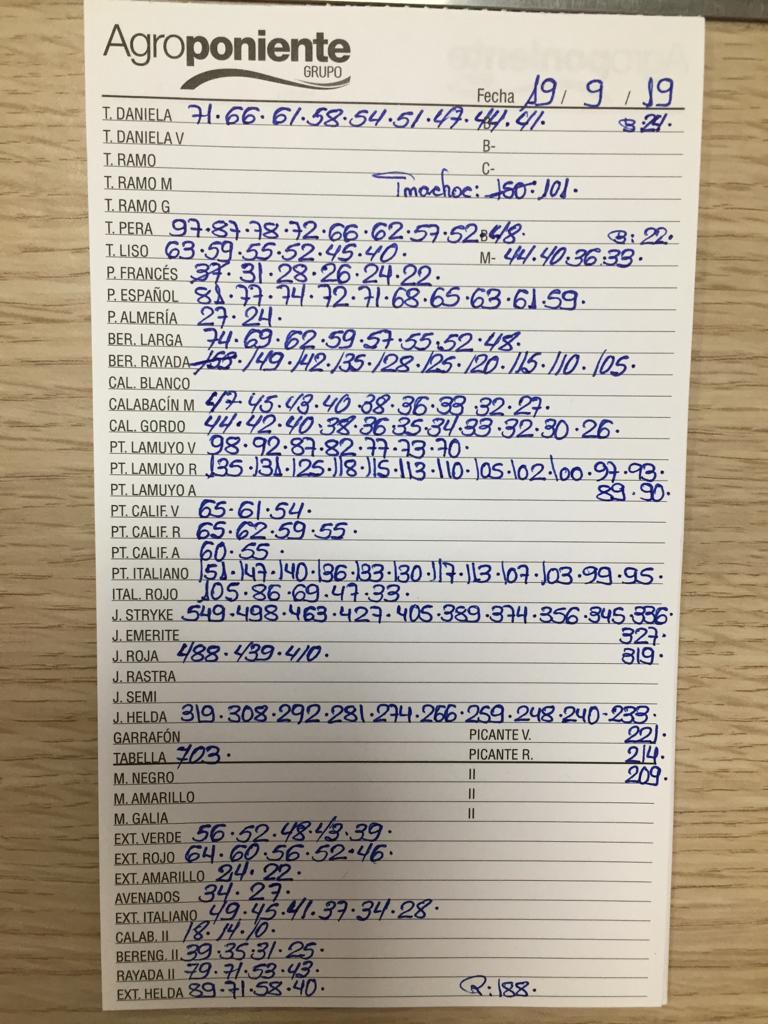 Agroponiente
GRUPO
Fecha 19 / 9 / 19
T. DANIELA 71·66·61·58·54·51·47·44·41· B:24·
T. DANIELA V B-
T. RAMO C-
T. RAMO M Tmachoc: 150·101·
T. RAMO G
T. PERA 97·87·78·72·66·62·57·52·48· B:22·
T. LISO 63·59·55·52·45·40· M- 44·40·36·33·
P. FRANCÉS 37·31·28·26·24·22·
P. ESPAÑOL 81·77·74·72·71·68·65·63·61·59·
P. ALMERÍA 27·24·
BER. LARGA 74·69·62·59·57·55·52·48·
BER. RAYADA 149·142·135·128·125·120·115·110·105·
CAL. BLANCO
CALABACÍN M 47·45·43·40·38·36·33·32·27·
CAL. GORDO 44·42·40·38·36·35·34·33·32·30·26·
PT. LAMUYO V 98·92·87·82·77·73·70·
PT. LAMUYO R 135·131·125·118·115·113·110·105·102·100·97·93·
PT. LAMUYO A 89·90·
PT. CALIF. V 65·61·54·
PT. CALIF. R 65·62·59·55·
PT. CALIF. A 60·55·
PT. ITALIANO 151·147·140·136·133·130·117·113·107·103·99·95·
ITAL. ROJO 105·86·69·47·33·
J. STRYKE 549·498·463·427·405·389·374·356·345·336·
J. EMERITE 327·
J. ROJA 488·439·410· 319·
J. RASTRA
J. SEMI
J. HELDA 319·308·292·281·274·266·259·248·240·233·
GARRAFÓN PICANTE V. 221·
TABELLA 703· PICANTE R. 214·
M. NEGRO II 209·
M. AMARILLO II
M. GALIA II
EXT. VERDE 56·52·48·43·39·
EXT. ROJO 64·60·56·52·46·
EXT. AMARILLO 24·22·
AVENADOS 34·27·
EXT. ITALIANO 49·45·41·37·34·28·
CALAB. II 18·14·10·
BERENG. II 39·35·31·25·
RAYADA II 79·71·53·43·
EXT. HELDA 89·71·58·40· R:188·